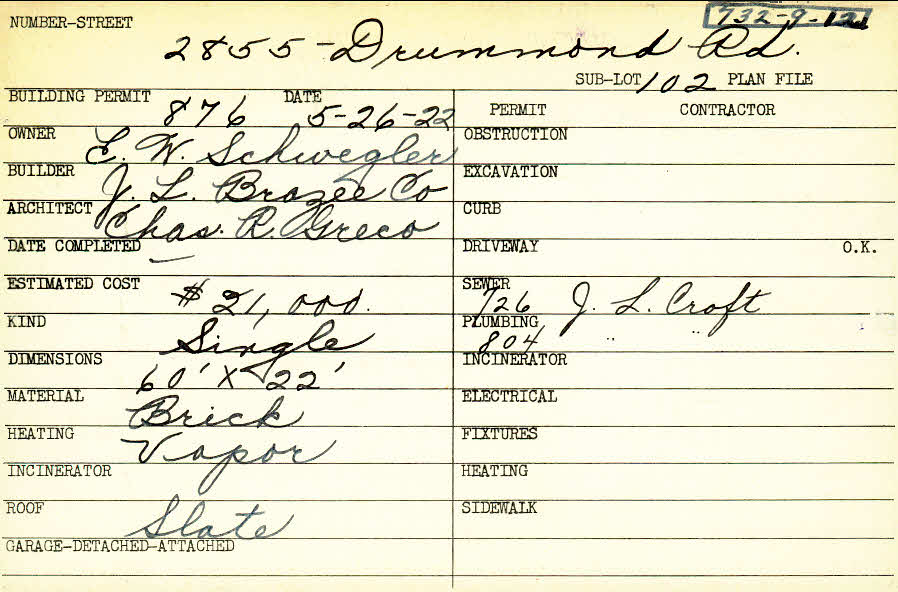 NUMBER-STREET 732-9-12
2855-Drummond Rd.
SUB-LOT 102 PLAN FILE
BUILDING PERMIT 876 DATE 5-26-22
PERMIT CONTRACTOR
OWNER E. W. Schwegler
OBSTRUCTION
BUILDER J. L. Brazee Co
EXCAVATION
ARCHITECT Chas. R. Greco
CURB
DATE COMPLETED —
DRIVEWAY O.K.
ESTIMATED COST $21,000.
SEWER 726 J. L. Croft
KIND Single
PLUMBING 804 " "
DIMENSIONS 60' X 22'
INCINERATOR
MATERIAL Brick
ELECTRICAL
HEATING Vapor
FIXTURES
INCINERATOR
HEATING
ROOF Slate
SIDEWALK
GARAGE-DETACHED-ATTACHED